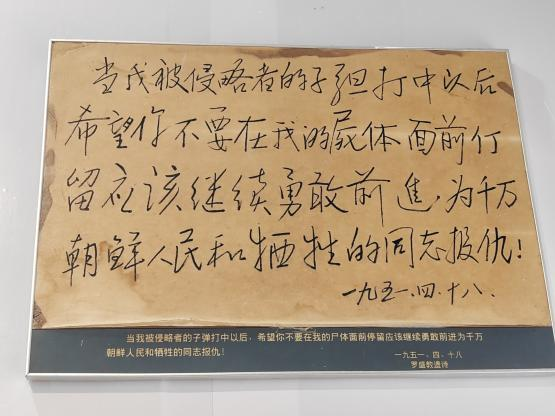 当我被侵略者的子弹打中以后
希望你不要在我的屍体面前仃
留应该继续勇敢前進,为千万
朝鲜人民和牺牲的同志报仇!
一九五一.四.十八.
当我被侵略者的子弹打中以后,希望你不要在我的尸体面前停留应该继续勇敢前进为千万
朝鲜人民和牺牲的同志报仇!
一九五一、四、十八
罗盛教遗诗